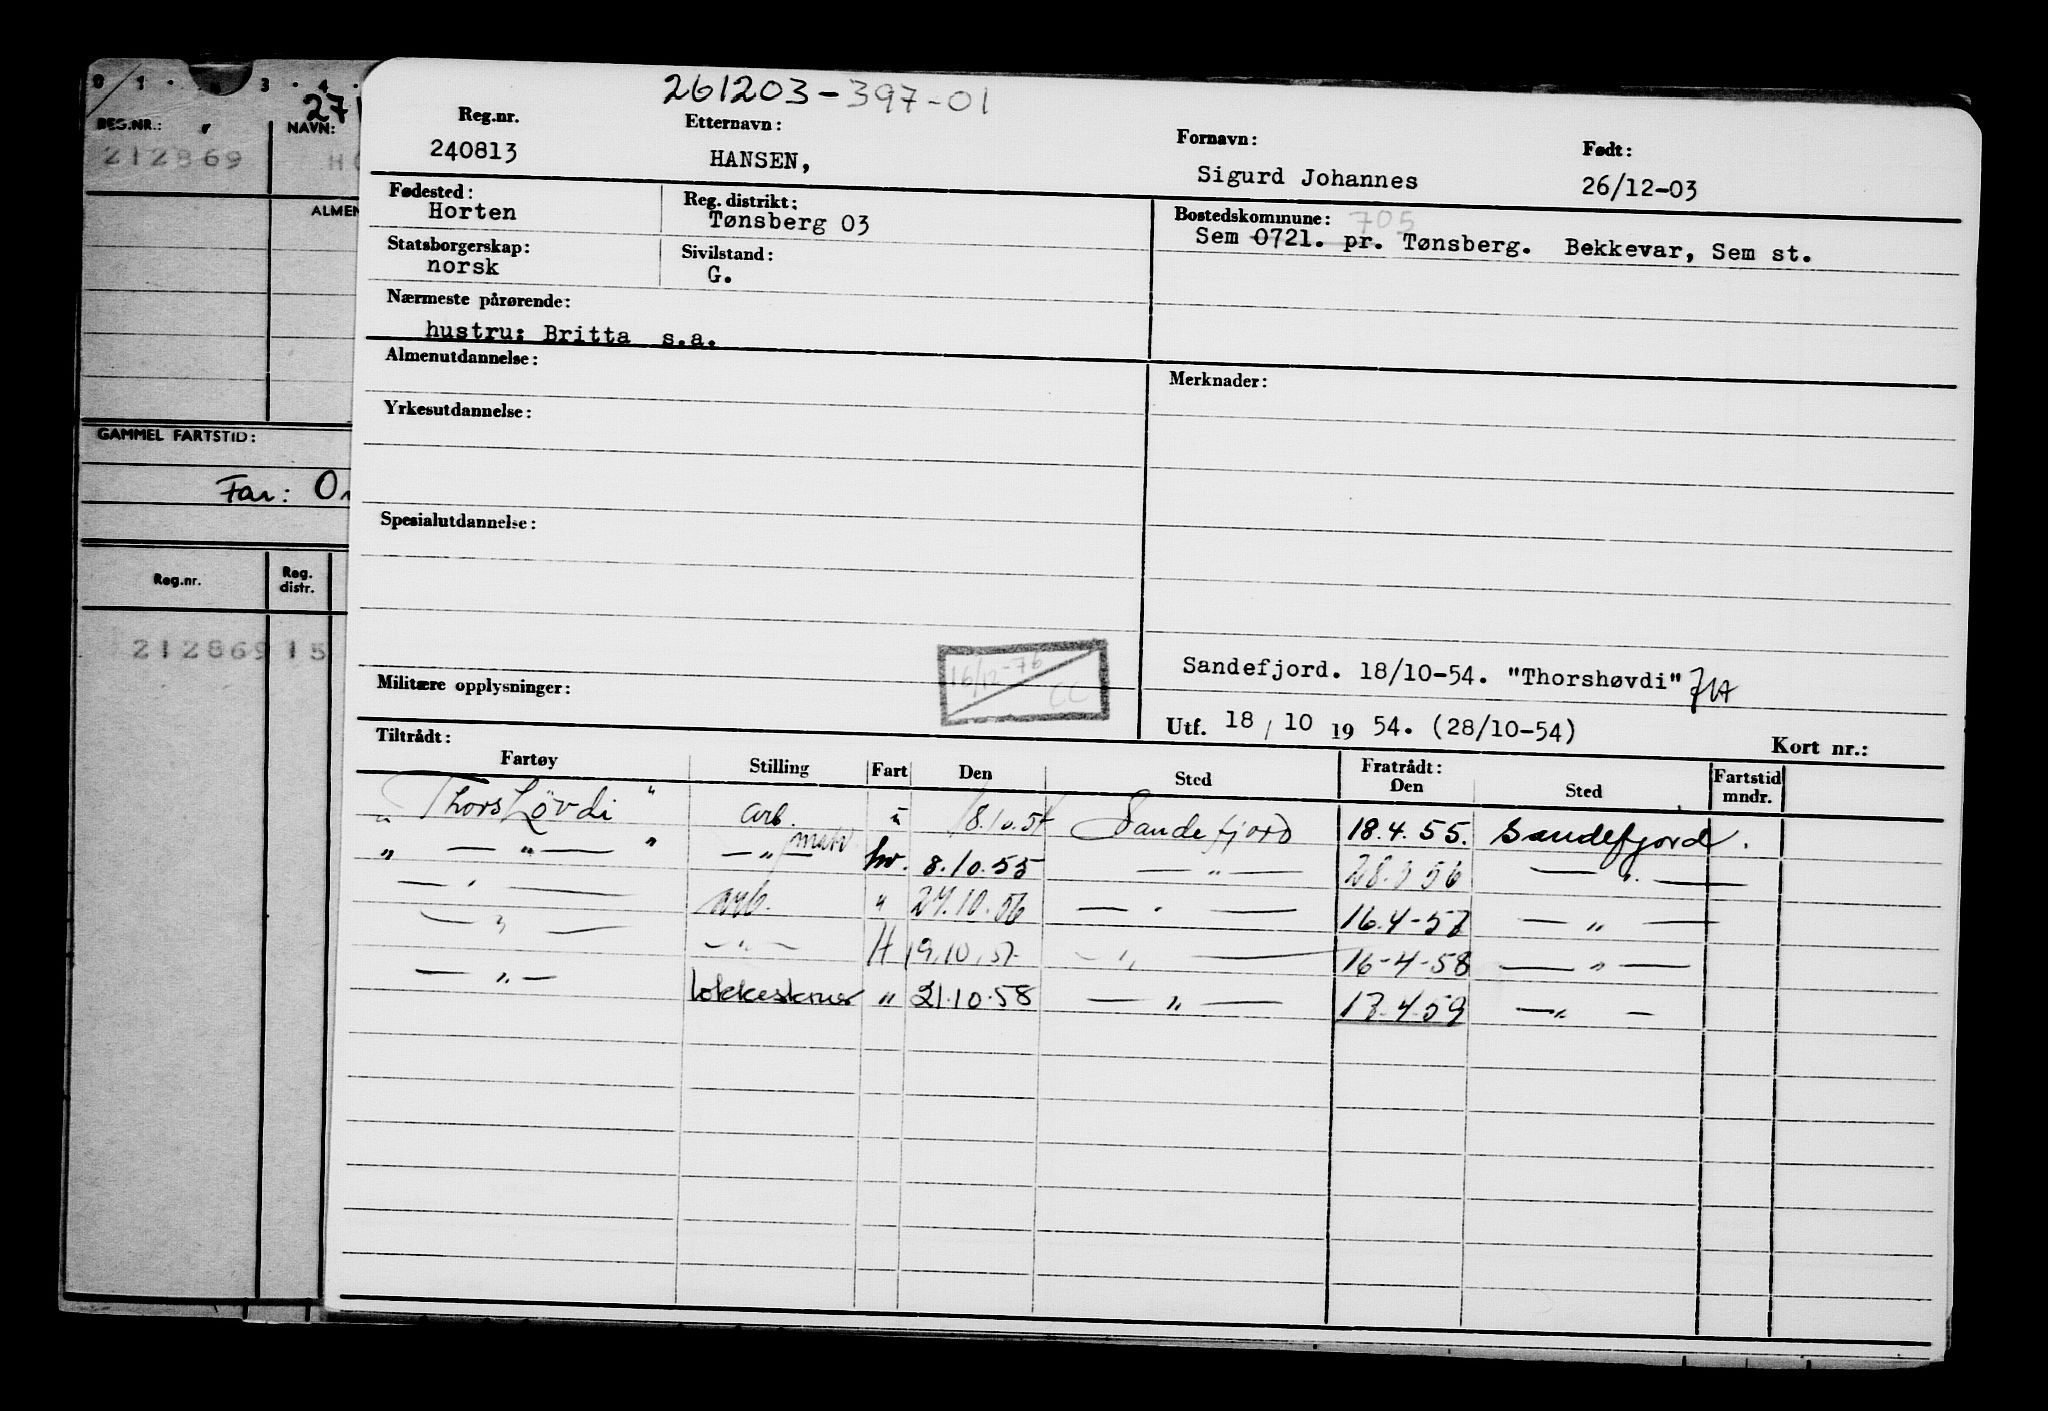 0 1 . 3 . 4 .
271
REG.NR.: NAVN:
212869 H
ALMEN
GAMMEL FARTSTID:
Far:
Reg.nr. Reg. distr.
212869 15
261203-397-01
Reg.nr. Etternavn: Fornavn: Født:
240813 HANSEN, Sigurd Johannes 26/12-03
Fødested: Reg. distrikt: Bostedskommune: 705
Horten Tønsberg 03 Sem 0721. pr. Tønsberg. Bekkevar, Sem st.
Statsborgerskap: Sivilstand:
norsk G.
Nærmeste pårørende:
hustru: Britta s.a.
Almenutdannelse: Merknader:
Yrkesutdannelse:
Spesialutdannelse:
16/12-76 CC
Sandefjord. 18/10-54. "Thorshøvdi"
Militære opplysninger:
Utf. 18 / 10 19 54. (28/10-54) Kort nr.:
Tiltrådt: Fratrådt:
Fartøy Stilling Fart Den Sted Den Sted Fartstid mndr.
"Thorshøvdi" arb. u 18.10.54 Sandefjord 18.4.55. Sandefjord.
" — " — " — " — hv. 8.10.55 — " — — " —
— " — arb. " 27.10.56 — " — 16.4-57 — " —
— " — — " — H 19.10.57 — " — 16-4-58 — " —
— " — " 21.10.58 — " — 17.4.59 — " —